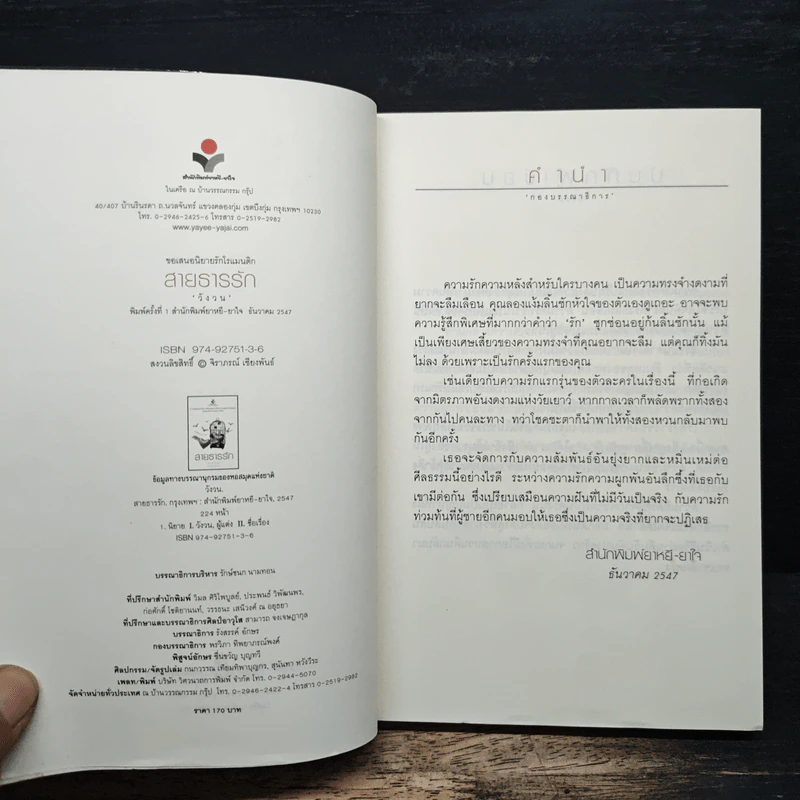 สำนักพิมพ์ยาหยี-ยาใจ
ในเครือ ณ บ้านวรรณกรรม กรุ๊ป
40/407 บ้านรินรดา ถ.นวลจันทร์ แขวงคลองกุ่ม เขตบึงกุ่ม กรุงเทพฯ 10230
โทร. 0-2946-2425-6 โทรสาร 0-2519-2982
www.yayee-yajai.com
ขอเสนอนิยายรักโรแมนติก
สายธารรัก
'วังวน'
พิมพ์ครั้งที่ 1 สำนักพิมพ์ยาหยี-ยาใจ ธันวาคม 2547
ISBN 974-92751-3-6
สงวนลิขสิทธิ์ © จิราภรณ์ เชียงพันธ์
สายธารรัก
ข้อมูลทางบรรณานุกรมของหอสมุดแห่งชาติ
วังวน.
สายธารรัก. กรุงเทพฯ : สำนักพิมพ์ยาหยี-ยาใจ, 2547
224 หน้า
1. นิยาย I. วังวน, ผู้แต่ง II. ชื่อเรื่อง
ISBN 974-92751-3-6
บรรณาธิการบริหาร รักษ์ชนก นามทอน
ที่ปรึกษาสำนักพิมพ์ วิมล ศิริไพบูลย์, ประพนธ์ วิพัฒนพร,
ก่อศักดิ์ โชติยานนท์, วรรธนะ เสนีวงศ์ ณ อยุธยา
ที่ปรึกษาและบรรณาธิการศิลป์อาวุโส สามารถ จงเจษฎากุล
บรรณาธิการ รังสรรค์ อักษร
กองบรรณาธิการ พรวิภา ทิพยาภรณ์พงศ์
พิสูจน์อักษร ชื่นขวัญ บุญทวี
ศิลปกรรม/จัดรูปเล่ม กนกวรรณ เทียมทิพาบุญกร, สุนันทา หวังวีระ
เพลท/พิมพ์ บริษัท วิศวนาถการพิมพ์ จำกัด โทร. 0-2944-5070
จัดจำหน่ายทั่วประเทศ ณ บ้านวรรณกรรม กรุ๊ป โทร. 0-2946-2422-4 โทรสาร 0-2519-2982
ราคา 170 บาท
คำนำ
'กองบรรณาธิการ'
ความรักความหลังสำหรับใครบางคน เป็นความทรงจำงดงามที่
ยากจะลืมเลือน คุณลองแง้มลิ้นชักหัวใจของตัวเองดูเถอะ อาจจะพบ
ความรู้สึกพิเศษที่มากกว่าคำว่า 'รัก' ซุกซ่อนอยู่ก้นลิ้นชักนั้น แม้
เป็นเพียงเศษเสี้ยวของความทรงจำที่คุณอยากจะลืม แต่คุณก็ทิ้งมัน
ไม่ลง ด้วยเพราะเป็นรักครั้งแรกของคุณ
เช่นเดียวกับความรักแรกรุ่นของตัวละครในเรื่องนี้ ที่ก่อเกิด
จากมิตรภาพอันงดงามแห่งวัยเยาว์ หากกาลเวลาก็พลัดพรากทั้งสอง
จากกันไปคนละทาง ทว่าโชคชะตาก็นำพาให้ทั้งสองหวนกลับมาพบ
กันอีกครั้ง
เธอจะจัดการกับความสัมพันธ์อันยุ่งยากและหมิ่นเหม่ต่อ
ศีลธรรมนี้อย่างไรดี ระหว่างความรักความผูกพันอันลึกซึ้งที่เธอกับ
เขามีต่อกัน ซึ่งเปรียบเสมือนความฝันที่ไม่มีวันเป็นจริง กับความรัก
ท่วมท้นที่ผู้ชายอีกคนมอบให้เธอซึ่งเป็นความจริงที่ยากจะปฏิเสธ
สำนักพิมพ์ยาหยี-ยาใจ
ธันวาคม 2547